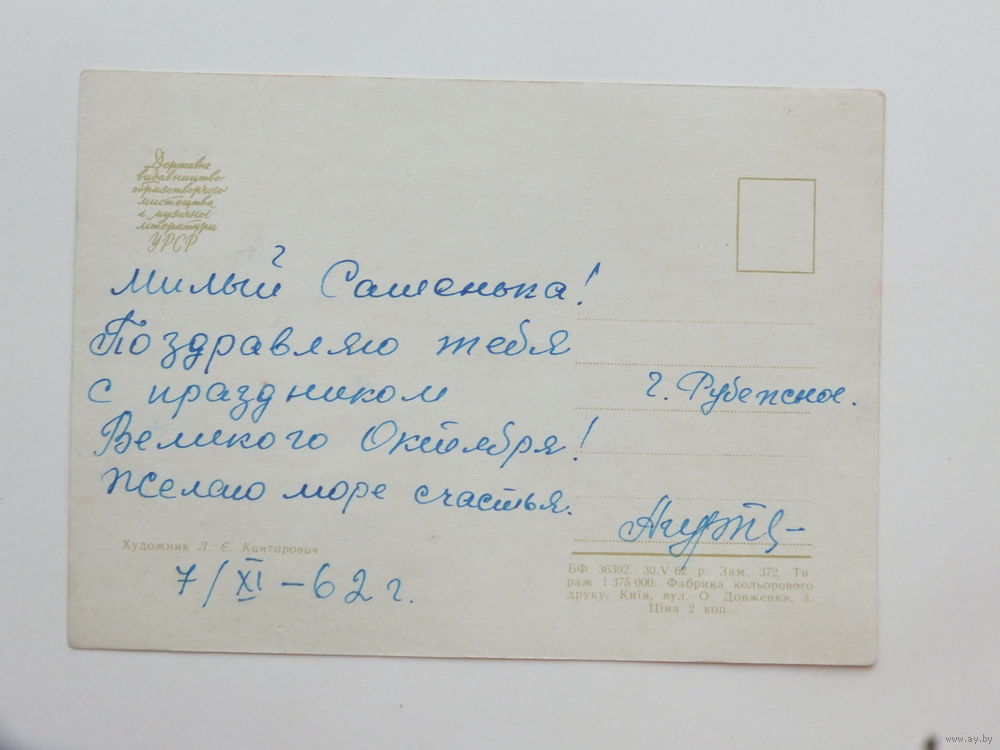 Державне
видавництво
образотворчого
мистецтва
і музичної
літератури
УРСР
Милый Сашенька!
Поздравляю тебя
с праздником
Великого Октября!
Желаю море счастья.
г. Рубежное.
Художник Л. Є. Кантарович
7/XI-62 г.
БФ 36392. 30.V-62 р. Зам. 372. Ти-
раж 1 375 000. Фабрика кольорового
друку. Київ, вул. О. Довженка, 3.
Ціна 2 коп.
www.ay.by